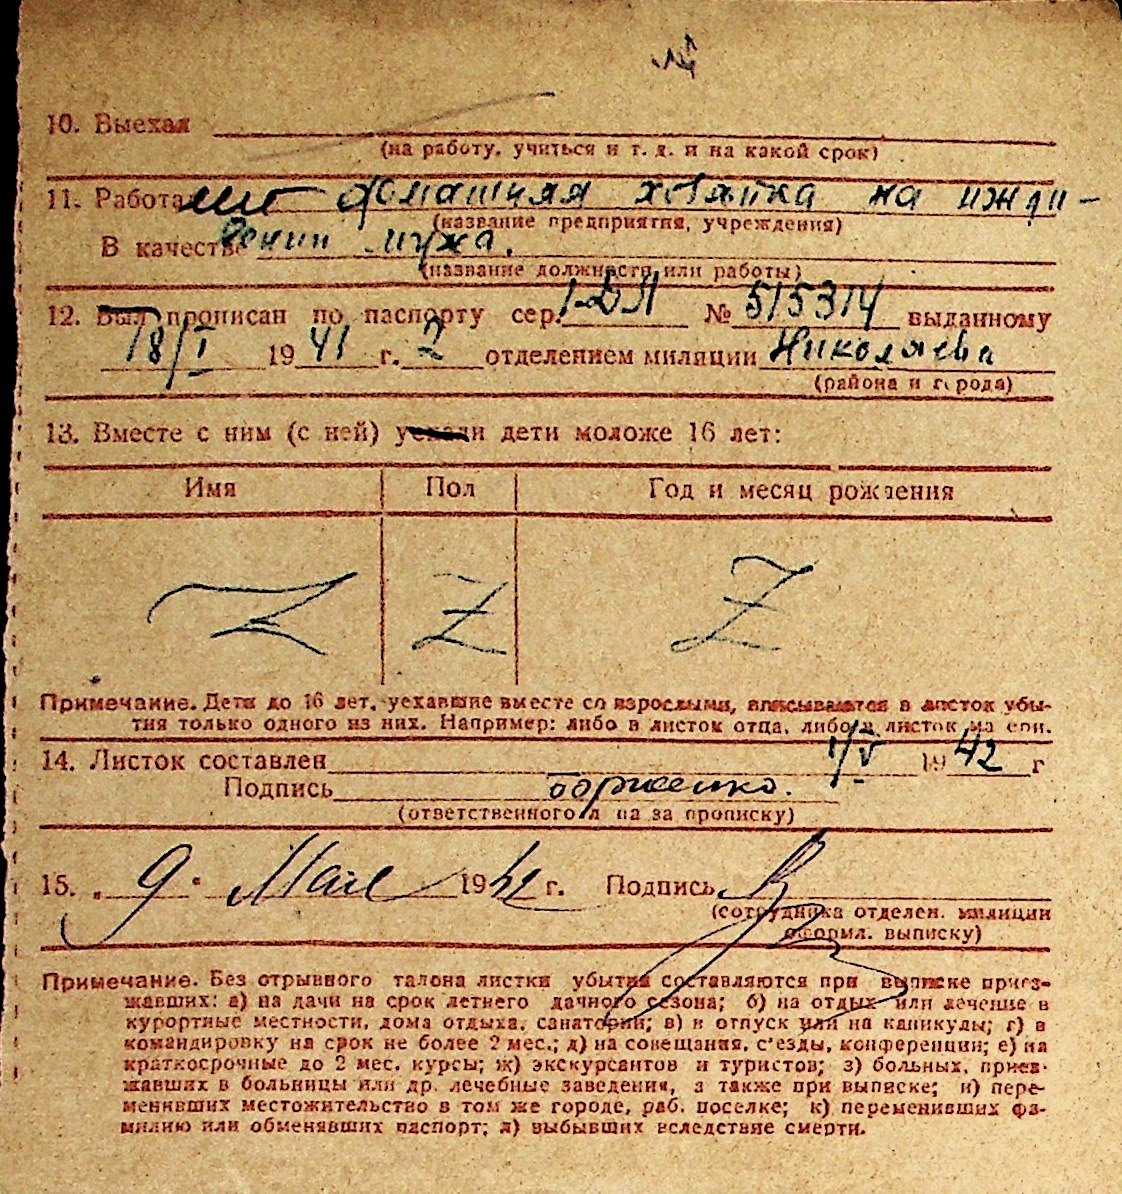 10. Выехал
(на работу, учиться и т. д. и на какой срок)
11. Работа нет домашняя хозяйка на ижди-
(название предприятия, учреждения)
В качестве вении мужа.
(название должности или работы)
12. Был прописан по паспорту сер. № 515314 выданному
18/I 1941 г. 2 отделением милиции Николаева
(района и города)
13. Вместе с ним (с ней) уехали дети моложе 16 лет:
Имя Пол Год и месяц рождения
Z Z Z
Примечание. Дети до 16 лет, уехавшие вместе со взрослыми, вписываются в листок убы-
тия только одного из них. Например: либо в листок отца, либо в листок матери.
14. Листок составлен 1/V 1942 г
Подпись
(ответственного л на за прописку)
15. „ 9 " Мая 1942 г. Подпись
(сотрудника отделен. милиции
оформл. выписку)
Примечание. Без отрывного талона листки убытия составляются при выписке приез-
жавших: а) на дачи на срок летнего дачного сезона; б) на отдых или лечение в
курортные местности, дома отдыха, санатории; в) в отпуск или на каникулы; г) в
командировку на срок не более 2 мес.; д) на совещания, с'езды, конференции; е) на
краткосрочные до 2 мес. курсы; ж) экскурсантов и туристов; з) больных, приез-
жавших в больницы или др. лечебные заведения, а также при выписке; и) пере-
менивших местожительство в том же городе, раб. поселке; к) переменивших фа-
милию или обменявших паспорт; л) выбывших вследствие смерти.